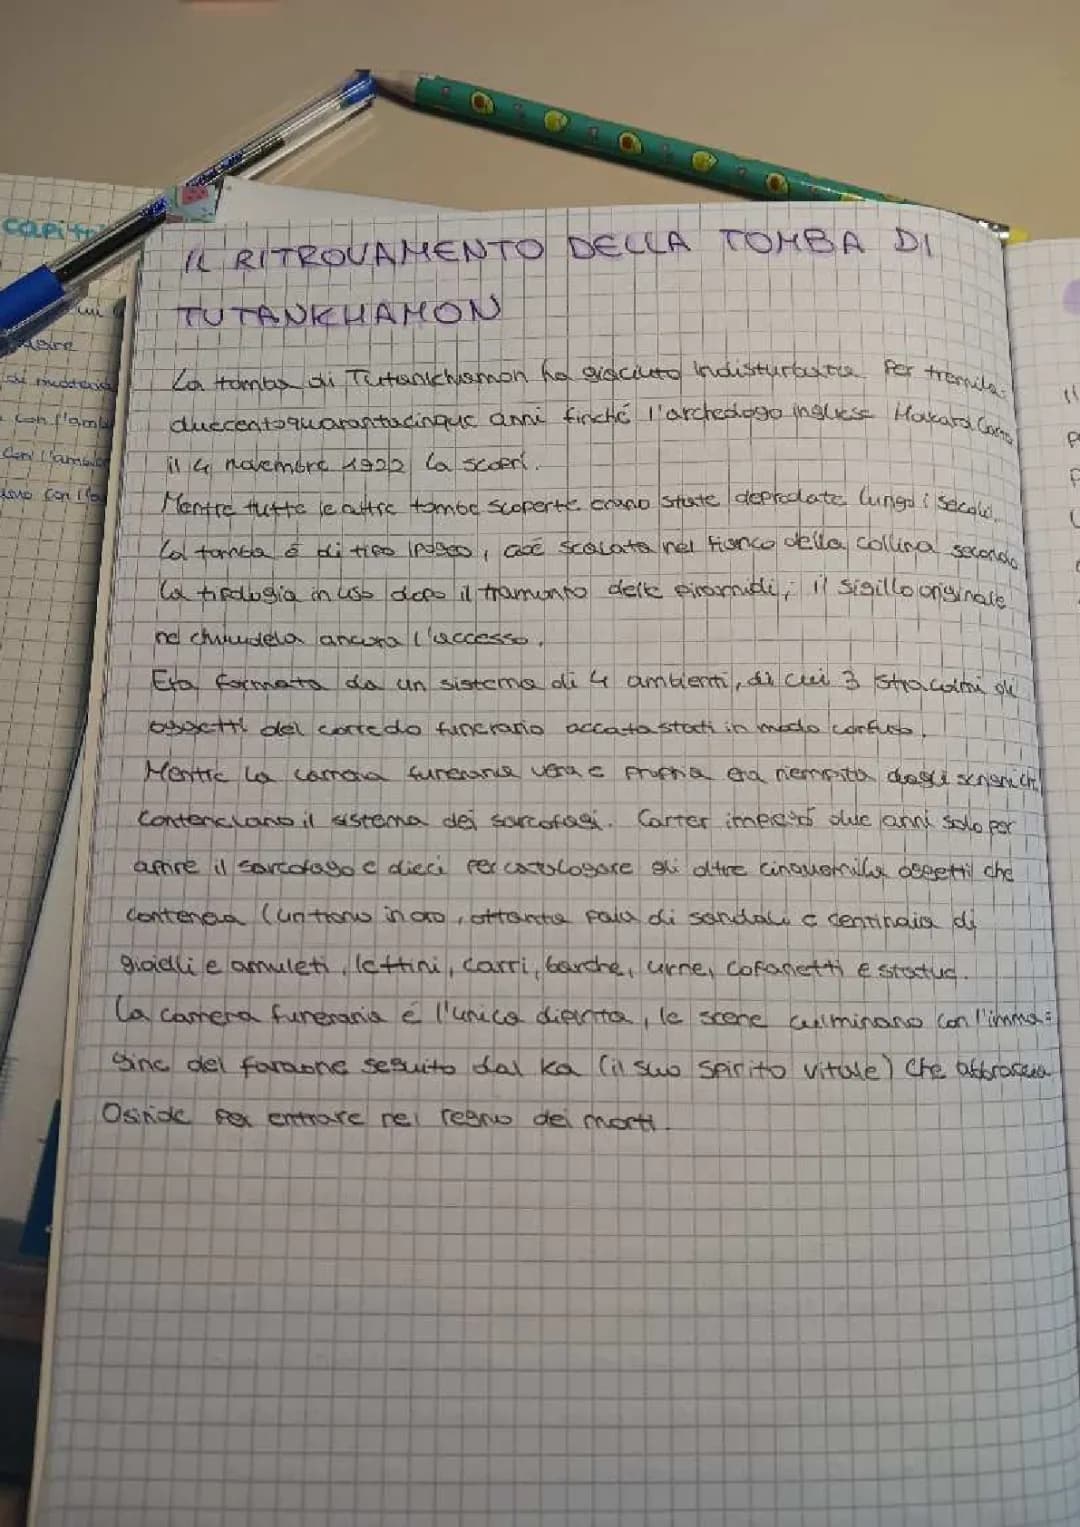 capito
IL RITROVAMENTO DELLA TOMBA DI
TUTANKHAMON
La tomba di Tutankhamon ha giaciuto indisturbata per tremila-
duecentoquarantacinque anni finché l'archeologo inglese Howard Carter
il 4 novembre 1922 la scoprì.
Mentre tutte le altre tombe scoperte erano state depredate lungo i secoli.
La tomba è di tipo ipogeo, cioè scavata nel fianco della collina secondo
la tipologia in uso dopo il tramonto delle piramidi; il sigillo originale
ne chiudeva ancora l'accesso.
Era formata da un sistema di 4 ambienti, di cui 3 stracolmi di
oggetti del corredo funerario accatastati in modo confuso.
Mentre la camera funeraria vera e propria era riempita dagli scrigni che
contenevano il sistema dei sarcofagi. Carter impiegò due anni solo per
aprire il sarcofago e dieci per catalogare gli oltre cinquemila oggetti che
conteneva (un trono in oro, ottanta paia di sandali e centinaia di
gioielli e amuleti, lettini, carri, barche, urne, cofanetti e statue.
La camera funeraria é l'unica dipinta, le scene culminano con l'imma=
gine del faraone seguito dal ka (il suo spirito vitale) che abbraccia
Osiride per entrare nel regno dei morti.